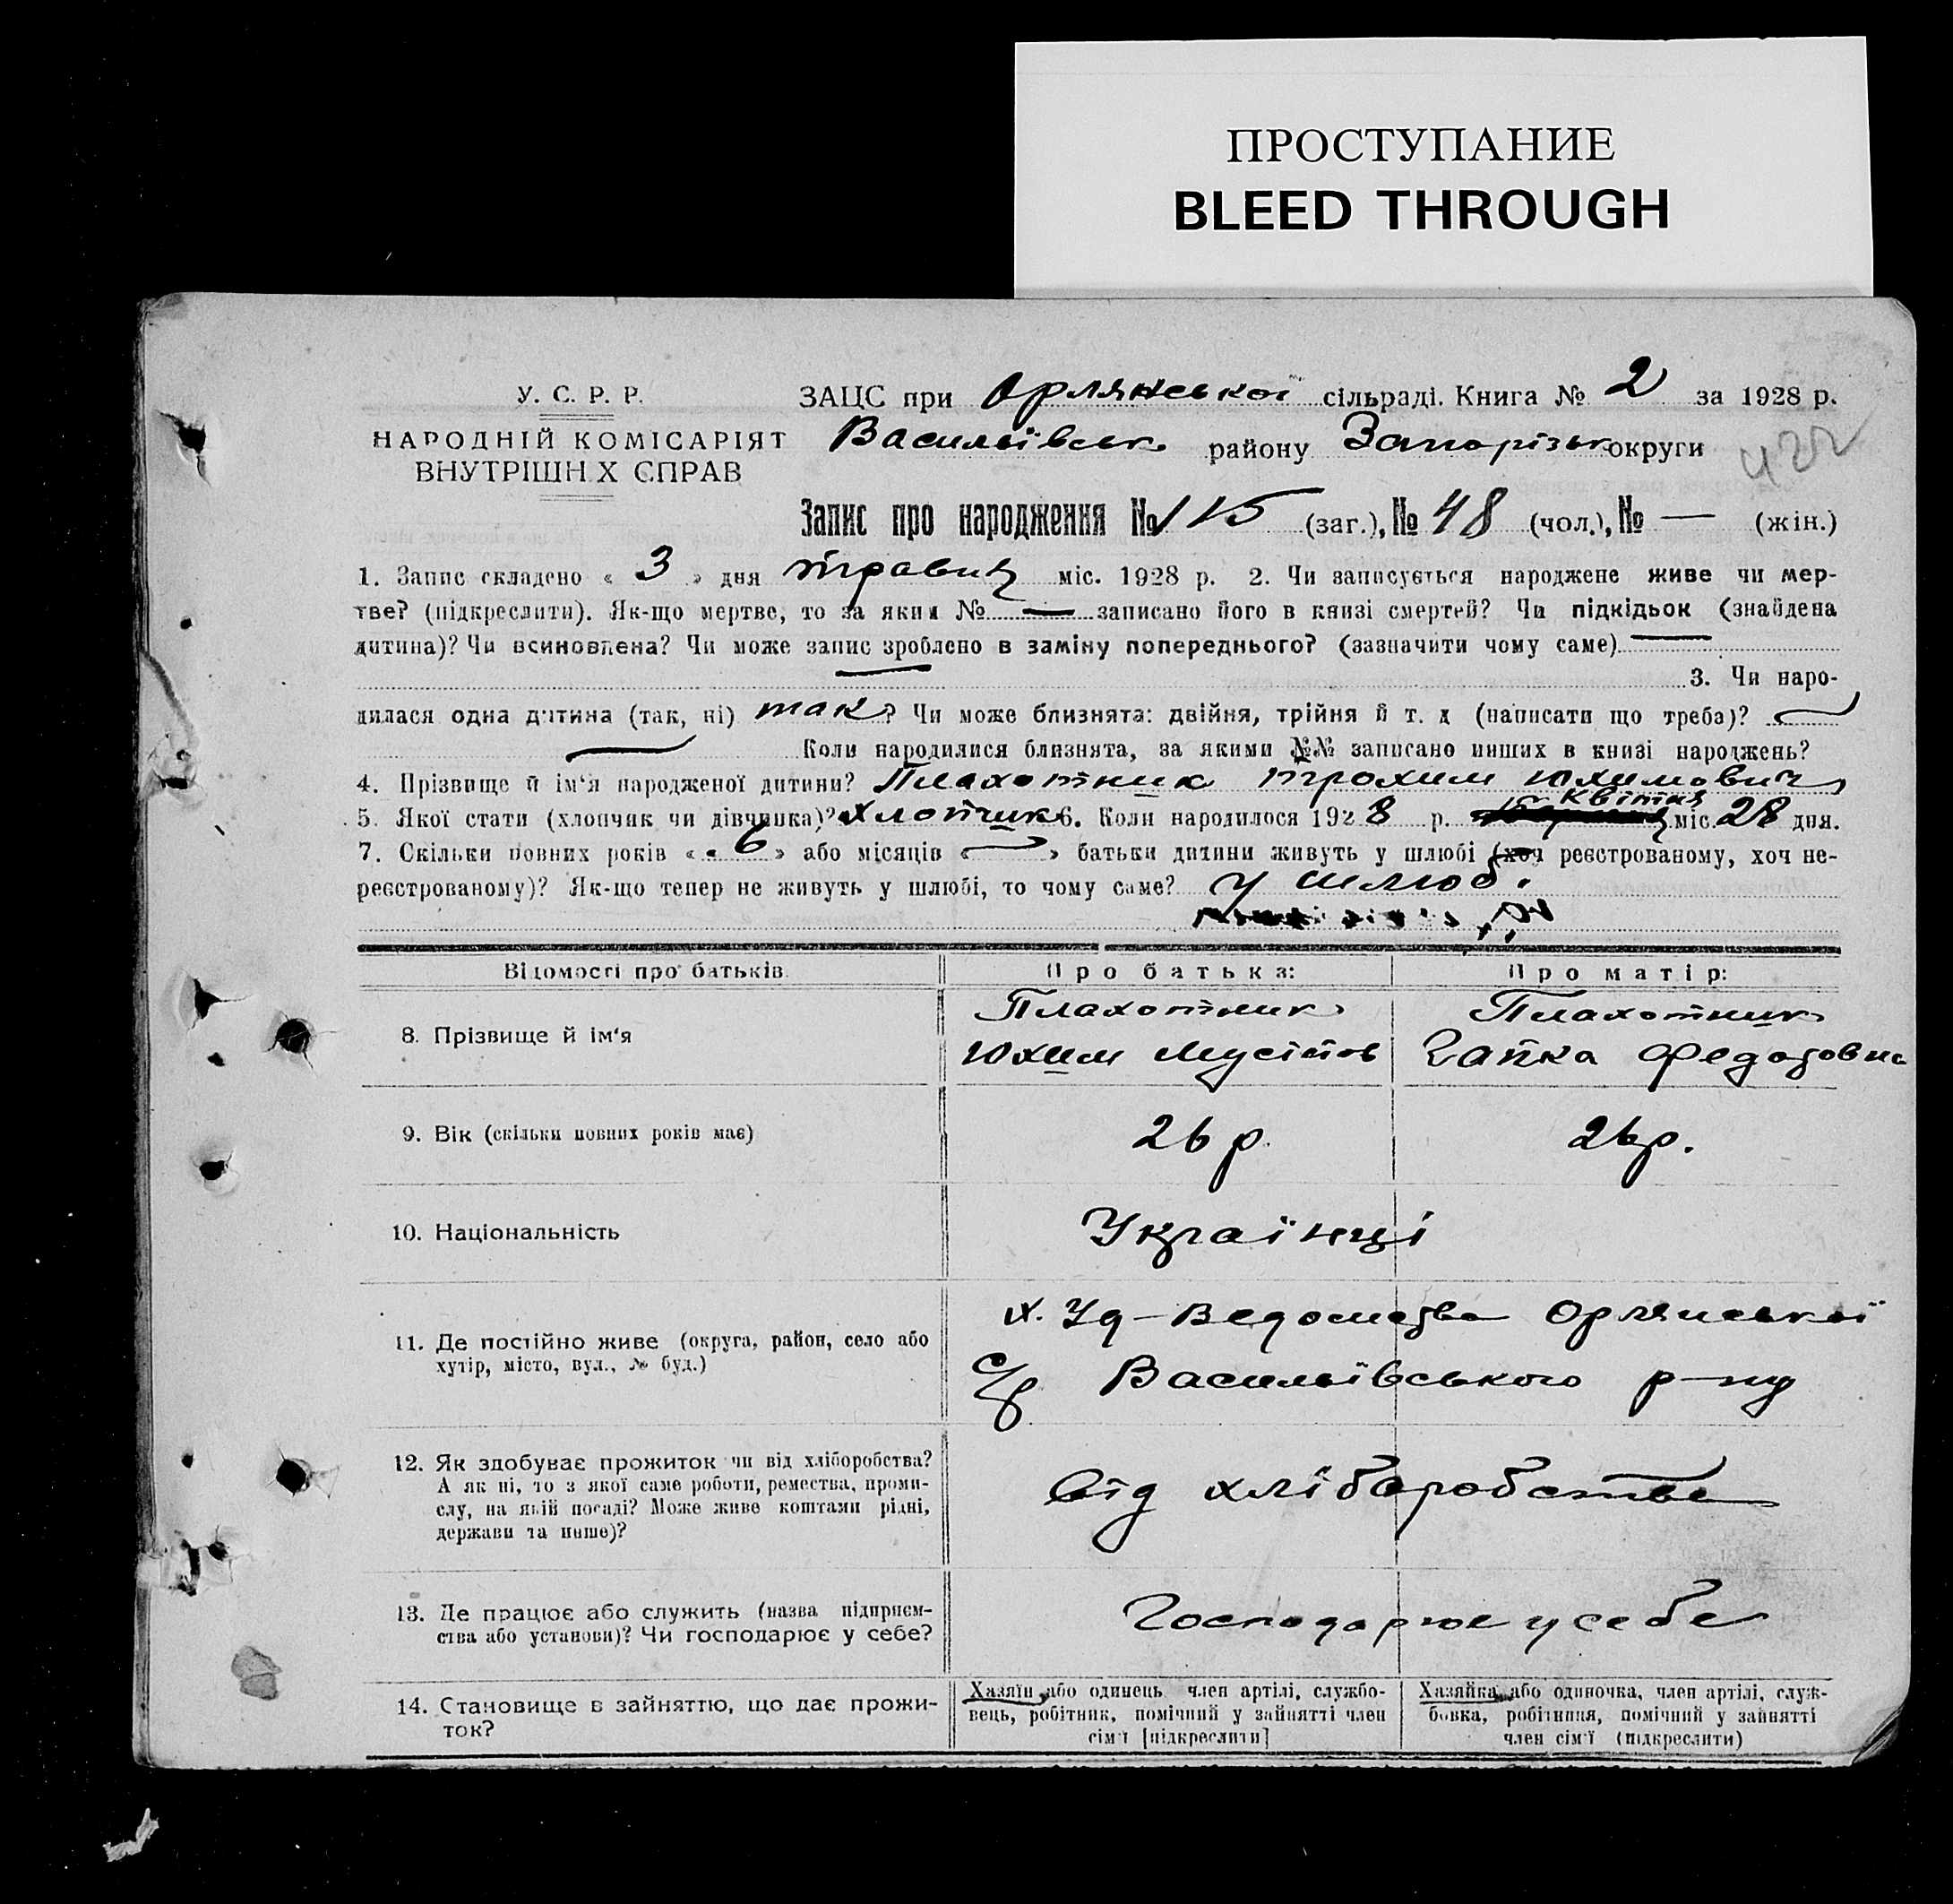 ПРОСТУПАНИЕ
BLEED THROUGH
У. С. Р. Р.
НАРОДНІЙ КОМІСАРІЯТ
ВНУТРІШН Х СПРАВ
ЗАЦС при Орлянської сільраді. Книга № 2 за 1928 р.
Васильївськ району Запорізьк округи
422
Запис про народження № 115 (заг.), № 48 (чол.), № — (жін.)
1. Запис складено « 3 » дня травня міс. 1928 р. 2. Чи записується народжене живе чи мер-
тве? (підкреслити). Як-що мертве, то за яким № — записано його в книзі смертей? Чи підкідьок (знайдена
дитина)? Чи всиновлена? Чи може запис зроблено в заміну попереднього? (зазначити чому саме) —
— 3. Чи наро-
дилася одна дитина (так, ні) так? Чи може близнята: двійня, трійня й т. д (написати що треба)? —
— Коли народилися близнята, за якими №№ записано инших в книзі народжень?
4. Прізвище й ім'я народженої дитини? Плахотник Трохим Юхимович
5. Якої стати (хлопчик чи дівчинка)? хлопчик 6. Коли народилося 1928 р. квітня міс. 28 дня.
7. Скільки повних років « 6 » або місяців « — » батьки дитини живуть у шлюбі (хоч реєстрованому, хоч не-
реєстрованому)? Як-що тепер не живуть у шлюбі, то чому саме? У шлюбі
Відомості про батьків
Про батька:
Про матір:
8. Прізвище й ім'я
Плахотник
Юхим Мусійов
Плахотник
Гапка Федотовна
9. Вік (скільки повних років має)
26 р.
26 р.
10. Національність
Українці
11. Де постійно живе (округа, район, село або
хутір, місто, вул., № буд.)
х. Уд-Ведомства Орлянської
с/р Васильївського р-ну
12. Як здобуває прожиток чи від хліборобства?
А як ні, то з якої саме роботи, ремества, проми-
слу, на якій посаді? Може живе коштами рідні,
держави та инше)?
Від хліборобства
13. Де працює або служить (назва підприєм-
ства або установи)? Чи господарює у себе?
Господарює у себе
14. Становище в зайняттю, що дає прожи-
ток?
Хазяїн або одинець член артілі, службо-
вець, робітник, помічний у зайнятті член
сім'ї [підкреслити]
Хазяйка або одиночка, член артілі, служ-
бовка, робітниця, помічний у зайнятті
член сім'ї (підкреслити)